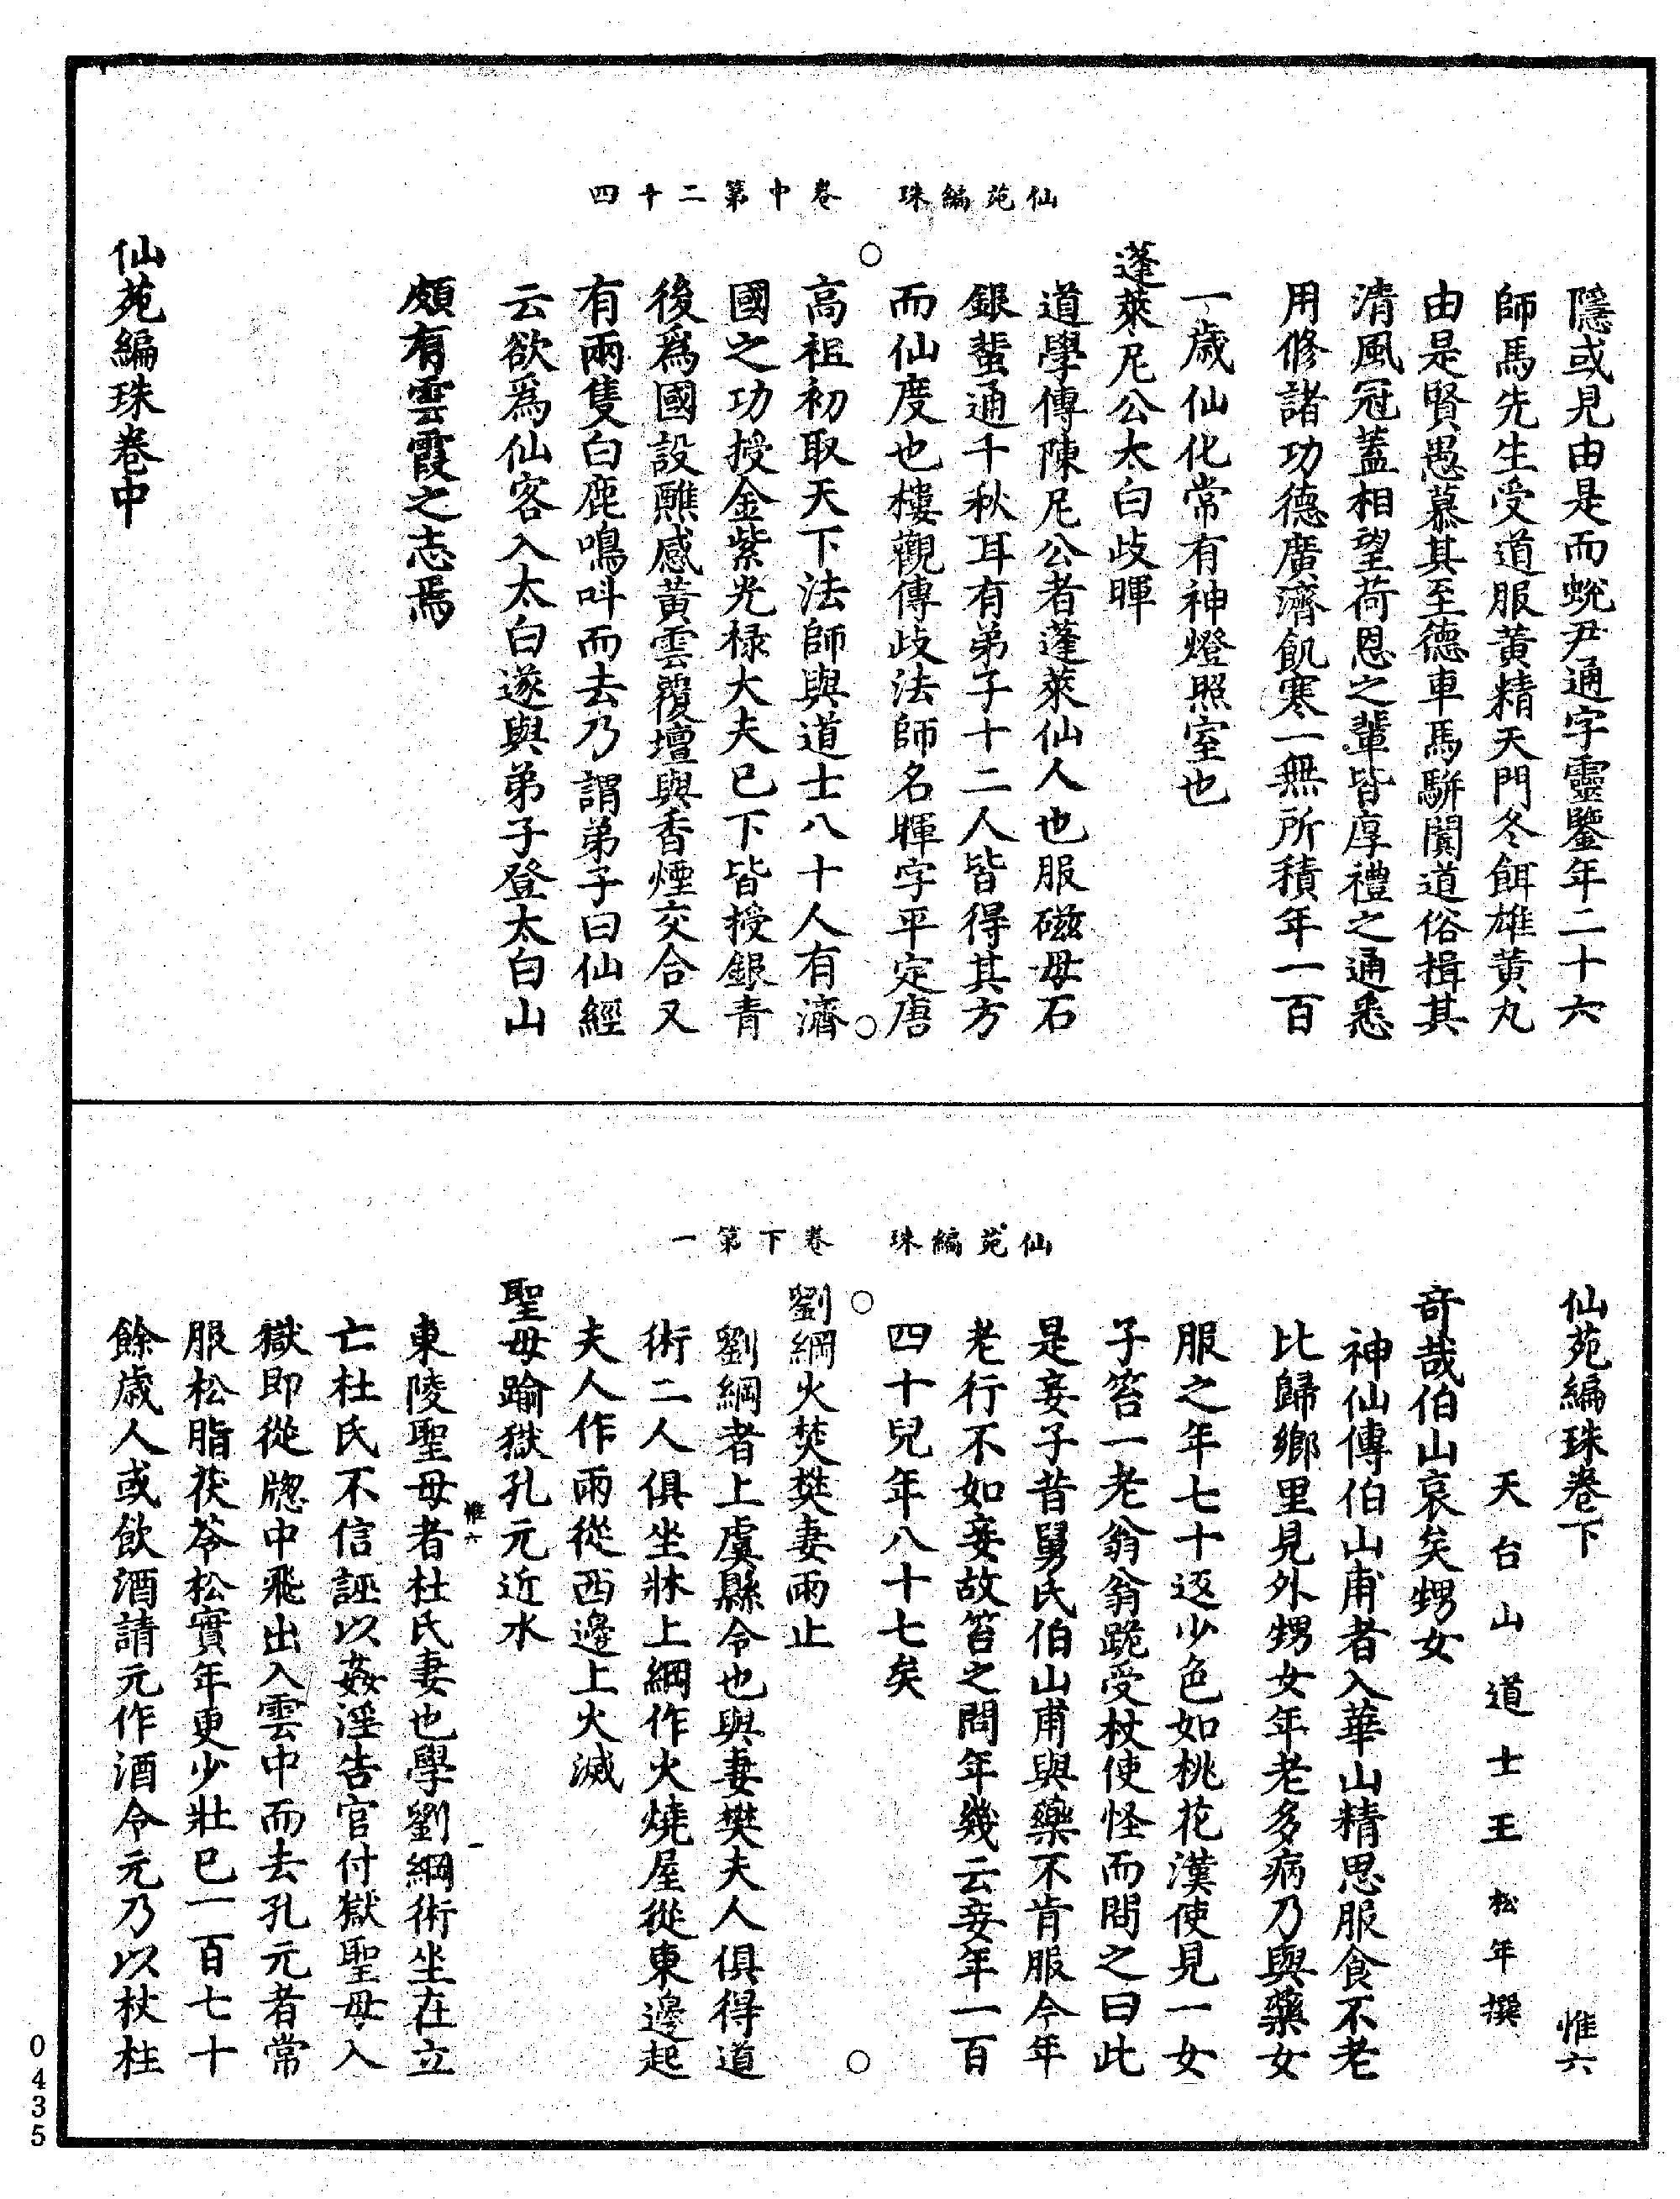 仙苑編珠　卷中第二十四
隱或見由是而蛻尹通字靈鑒年二十六
師馬先生受道服黃精天門冬餌雄黃丸
由是賢愚慕其至德車馬駢闐道俗揖其
清風冠蓋相望荷恩之輩皆厚禮之通悉
用修諸功德廣濟飢寒一無所積年一百
一歲仙化常有神燈照室也
蓬萊尼公太白歧暉
道學傳陳尼公者蓬萊仙人也服磁母石
銀蜚通千秋耳有弟子十二人皆得其方
而仙度也樓觀傳歧法師名暉字平定唐
高祖初取天下法師與道士八十人有濟
國之功授金紫光祿大夫已下皆授銀青
後爲國設醮感黃雲覆壇與香煙交合又
有兩隻白鹿鳴呌而去乃謂弟子曰仙經
云欲爲仙客入太白遂與弟子登太白山
頗有雲霞之志焉
仙苑編珠卷中
仙苑編珠　卷下第一
仙苑編珠卷下　惟六
天台山道士王松年撰
奇哉伯山哀矣甥女
神仙傳伯山甫者入華山精思服食不老
比歸鄉里見外甥女年老多病乃與藥女
服之年七十返少色如桃花漢使見一女
子笞一老翁翁跪受杖使怪而問之曰此
是妾子昔舅氏伯山甫與藥不肯服今年
老行不如妾故笞之問年幾云妾年一百
四十兒年八十七矣
劉綱火焚樊妻雨止
劉綱者上虞縣令也與妻樊夫人俱得道
術二人俱坐牀上綱作火燒屋從東邊起
夫人作雨從西邊上火滅
聖母踰獄孔元近水
惟六　一
東陵聖母者杜氏妻也學劉綱術坐在立
亡杜氏不信誣以姦淫告官付獄聖母入
獄即從牕中飛出入雲中而去孔元者常
服松脂茯苓松實年更少壯已一百七十
餘歲人或飲酒請元作酒令元乃以杖柱
0435